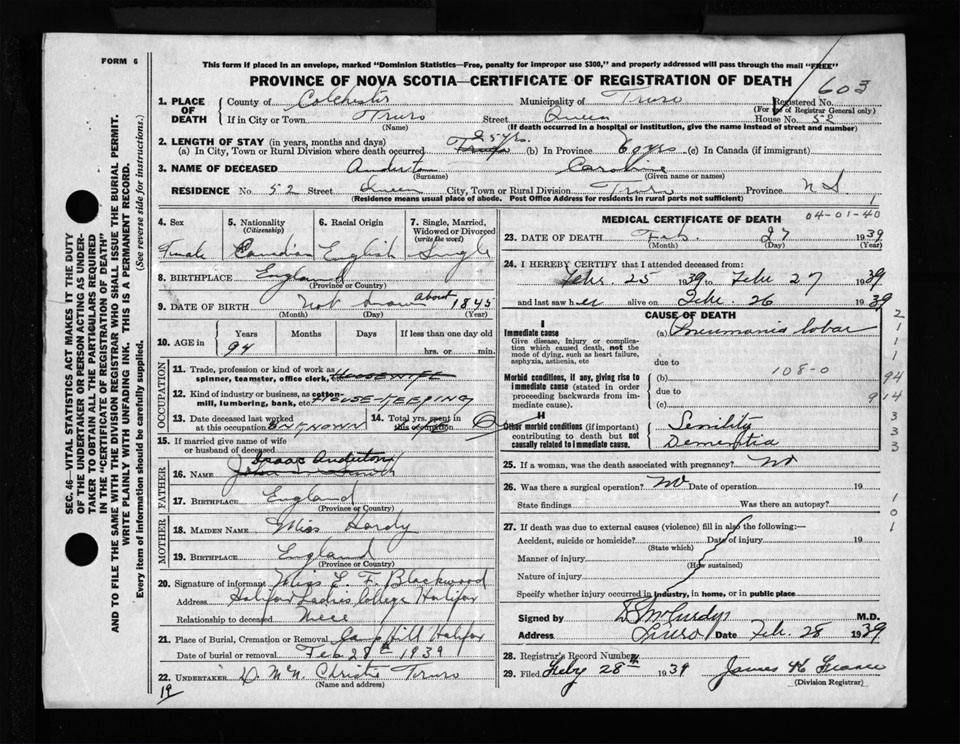 FORM 6
This form if placed in an envelope, marked "Dominion Statistics—Free, penalty for improper use $300," and properly addressed will pass through the mail "FREE"
PROVINCE OF NOVA SCOTIA—CERTIFICATE OF REGISTRATION OF DEATH
603
1. PLACE OF DEATH
County of Colchester Municipality of Truro Registered No.
(For use of Registrar General only)
If in City or Town Truro Street Queen House No. 52
(Name) (If death occurred in a hospital or institution, give the name instead of street and number)
2. LENGTH OF STAY (in years, months and days)
(a) In City, Town or Rural Division where death occurred (b) In Province (c) In Canada (if immigrant)
3. NAME OF DECEASED Anderton Caroline
(Surname) (Given name or names)
RESIDENCE No 52 Street Queen City, Town or Rural Division Truro Province N S
(Residence means usual place of abode. Post Office Address for residents in rural parts not sufficient)
1
SEC. 46—VITAL STATISTICS ACT MAKES IT THE DUTY
OF THE UNDERTAKER OR PERSON ACTING AS UNDER-
TAKER TO OBTAIN ALL THE PARTICULARS REQUIRED
IN THE "CERTIFICATE OF REGISTRATION OF DEATH"
AND TO FILE THE SAME WITH THE DIVISION REGISTRAR WHO SHALL ISSUE THE BURIAL PERMIT.
WRITE PLAINLY WITH UNFADING INK. THIS IS A PERMANENT RECORD.
Every item of information should be carefully supplied. (See reverse side for instructions.)
4. Sex 5. Nationality 6. Racial Origin 7. Single, Married,
(Citizenship) Widowed or Divorced
(write the word)
Female Canadian English Single
8. BIRTHPLACE England
(Province or Country)
9. DATE OF BIRTH Not known about 1845
(Month) (Day) (Year)
10. AGE in Years Months Days If less than one day old
94 hrs. or min.
OCCUPATION
11. Trade, profession or kind of work as
spinner, teamster, office clerk, HOUSEWIFE
12. Kind of industry or business, as cotton-
mill, lumbering, bank, etc. HOUSE-KEEPING
13. Date deceased last worked 14. Total yrs. spent in
at this occupation UNKNOWN this occupation
15. If married give name of wife
or husband of deceased
FATHER
Isaac Anderton
16. Name
17. Birthplace England
(Province or Country)
MOTHER
18. MAIDEN NAME Miss Hardy
19. BIRTHPLACE England
(Province or Country)
20. Signature of informant Miss E. F. Blackwood
Address Halifax Ladies College Halifax
Relationship to deceased niece
21. Place of Burial, Cremation or Removal Camp Hill Halifax
Date of burial or removal Feb 28th 1939
22. UNDERTAKER D. McN. Christie Truro
(Name and address)
19
MEDICAL CERTIFICATE OF DEATH 04-01-40
23. DATE OF DEATH Feb. 27 1939
(Month) (Day) (Year)
24. I HEREBY CERTIFY that I attended deceased from:
Febr. 25 1939 to Febr 27 1939
and last saw her alive on Febr. 26 1939
CAUSE OF DEATH
I
Immediate cause (a) Pneumonia lobar
Give disease, injury or complica-
tion which caused death, not the
mode of dying, such as heart failure,
asphyxia, asthenia, etc due to
108-0
Morbid conditions, if any, giving rise to (b)
immediate cause (stated in order due to
proceeding backwards from im-
mediate cause). (c)
II
Other morbid conditions (if important) Senility
contributing to death but not Dementia
causally related to immediate cause.
2
1
1
1
94
914
3
3
25. If a woman, was the death associated with pregnancy? No
26. Was there a surgical operation? No Date of operation 19
State findings Was there an autopsy?
1
0
1
27. If death was due to external causes (violence) fill in also the following:—
Accident, suicide or homicide? Date of injury 19
(State which)
Manner of injury
(How sustained)
Nature of injury
Specify whether injury occurred in industry, in home, or in public place
Signed by M.D.
Address Truro Date Feb. 28 1939
28. Registrar's Record Number
29. Filed Feby 28th 1939
(Division Registrar)